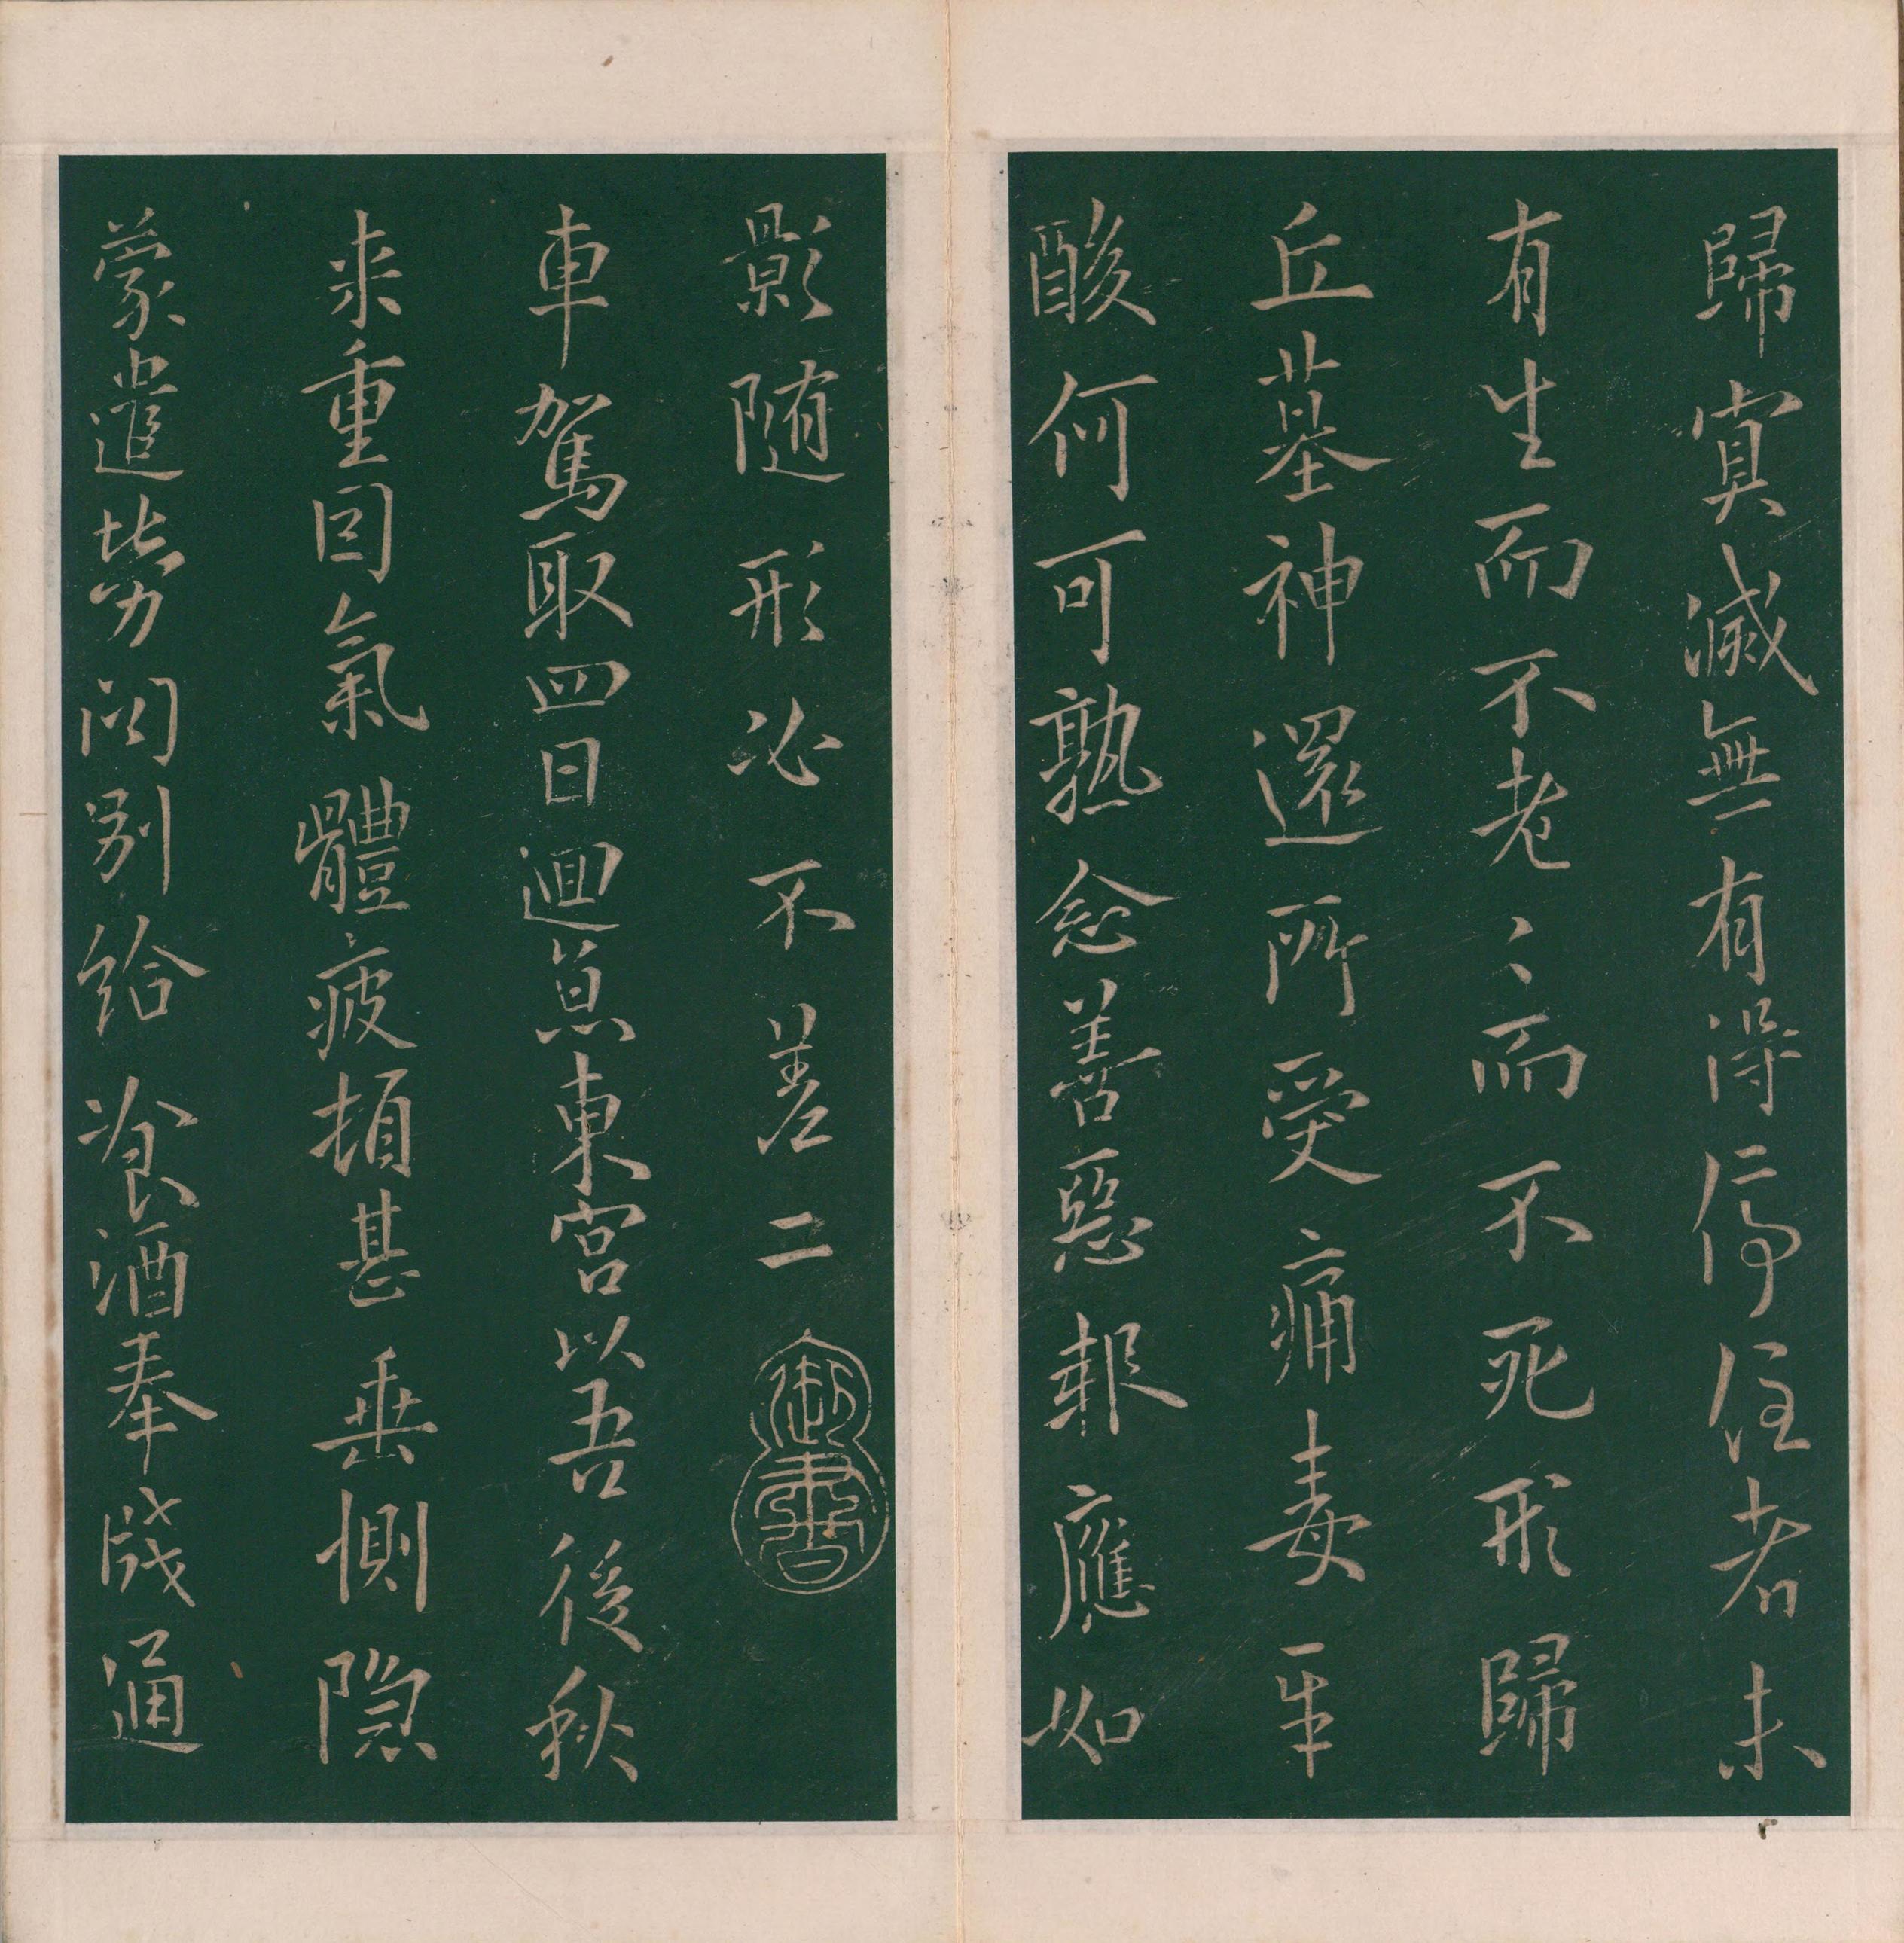 歸冥滅無有得停住者未
有生而不老〻而不死形歸
丘墓神還所受痛毒辛
酸何可熟念善惡報應如
影随形必不差二
御書
車駕取四日迴息東宮以吾後秋
来重因氣體疲頓甚垂惻隐
蒙遣勞問別給飡酒奉牋通